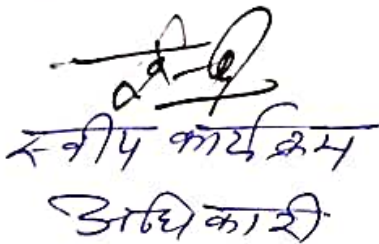 स्वीप कार्यक्रम
अधिकारी